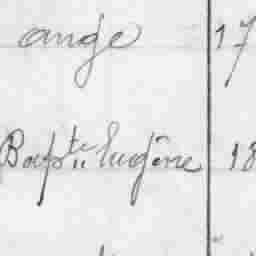 ange 17
Bapte Eugène 18